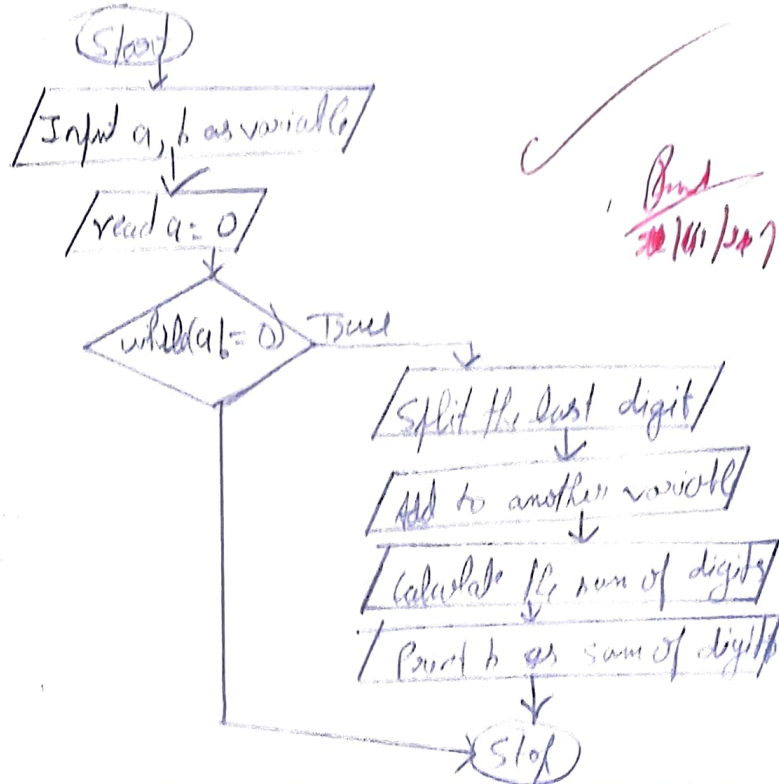 Start
Input a, b as variable
read a = 0
while(a b = 0) True
Split the last digit
Add to another variable
Calculate the sum of digits
Print b as sum of digits
Stop